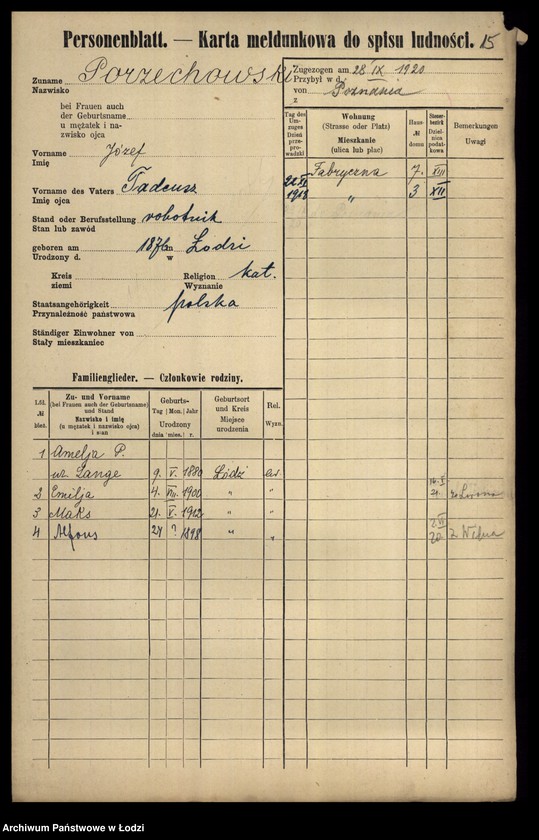 Personenblatt. — Karta meldunkowa do spisu ludności. 15
Zuname Porzechowski
Nazwisko
bei Frauen auch
der Geburtsname
u mężatek i na-
zwisko ojca
Vorname Józef
Imię
Vorname des Vaters Tadeusz
Imię ojca
Stand oder Berufsstellung robotnik
Stan lub zawód
geboren am 1876 in Łodzi
Urodzony d. w
Kreis Religion kat.
ziemi Wyznanie
Staatsangehörigkeit polska
Przynależność państwowa
Ständiger Einwohner von
Stały mieszkaniec
Zugezogen am 28 IX 1920
Przybył w d.
von Poznania
z
Tag des Um-zuges Dzień prze-prowadzki
Wohnung
(Strasse oder Platz)
Mieszkanie
(ulica lub plac)
Haus- № domu
Steuer-bezirk Dziel-nica podat-kowa
Bemerkungen
Uwagi
Fabryczna 7. XIII
1918 " 3 XII
Familienglieder. — Członkowie rodziny.
Lfd. № bież.
Zu- und Vorname
(bei Frauen auch der Geburtsname)
und Stand
Nazwisko i imię
(u mężatek i nazwisko ojca)
i stan
Geburts-
Tag Mon. Jahr
Urodzony
dnia mies. r.
Geburtsort
und Kreis
Miejsce
urodzenia
Rel.
Wyzn.
1 Amelja P.
ur. Lange 9. V. 1880 Łódź ew.
2 Emilja 4. VIII. 1900 " "
3 Maks 21. V. 1912 " "
4 Alfons 24 ? 1898 " "
21. ze Lwowa
20. z Wilna
Archiwum Państwowe w Łodzi